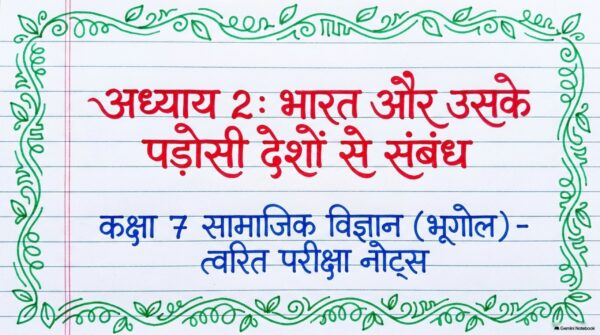 अध्याय 2: भारत और उसके
पड़ोसी देशों से संबंध
कक्षा 7 सामाजिक विज्ञान (भूगोल)-
त्वरित परीक्षा नोट्स
Gemini Notebook